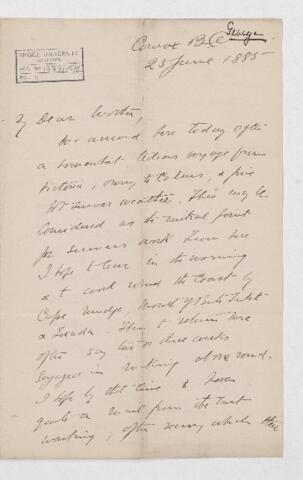 McGILL UNIVERSITY
ARCHIVES
ACC. NO.
REF.
George
Comox B.C.
25 June 1885
My Dear Mother,
We arrived here today after
a somewhat tedious voyage from
Victoria, owing to Calms, & fine
hot summer weather. This may be
Considered as the initial point
for summers work. From here
I hope to leave in the morning
& to work round the Coast by
Cape Mudge, Mouth of Bute Inlet
&
to return here
after say two or three weeks
Engaged in working
round.
I hope by that time to have
quite a mail from the East
waiting, after receiving which